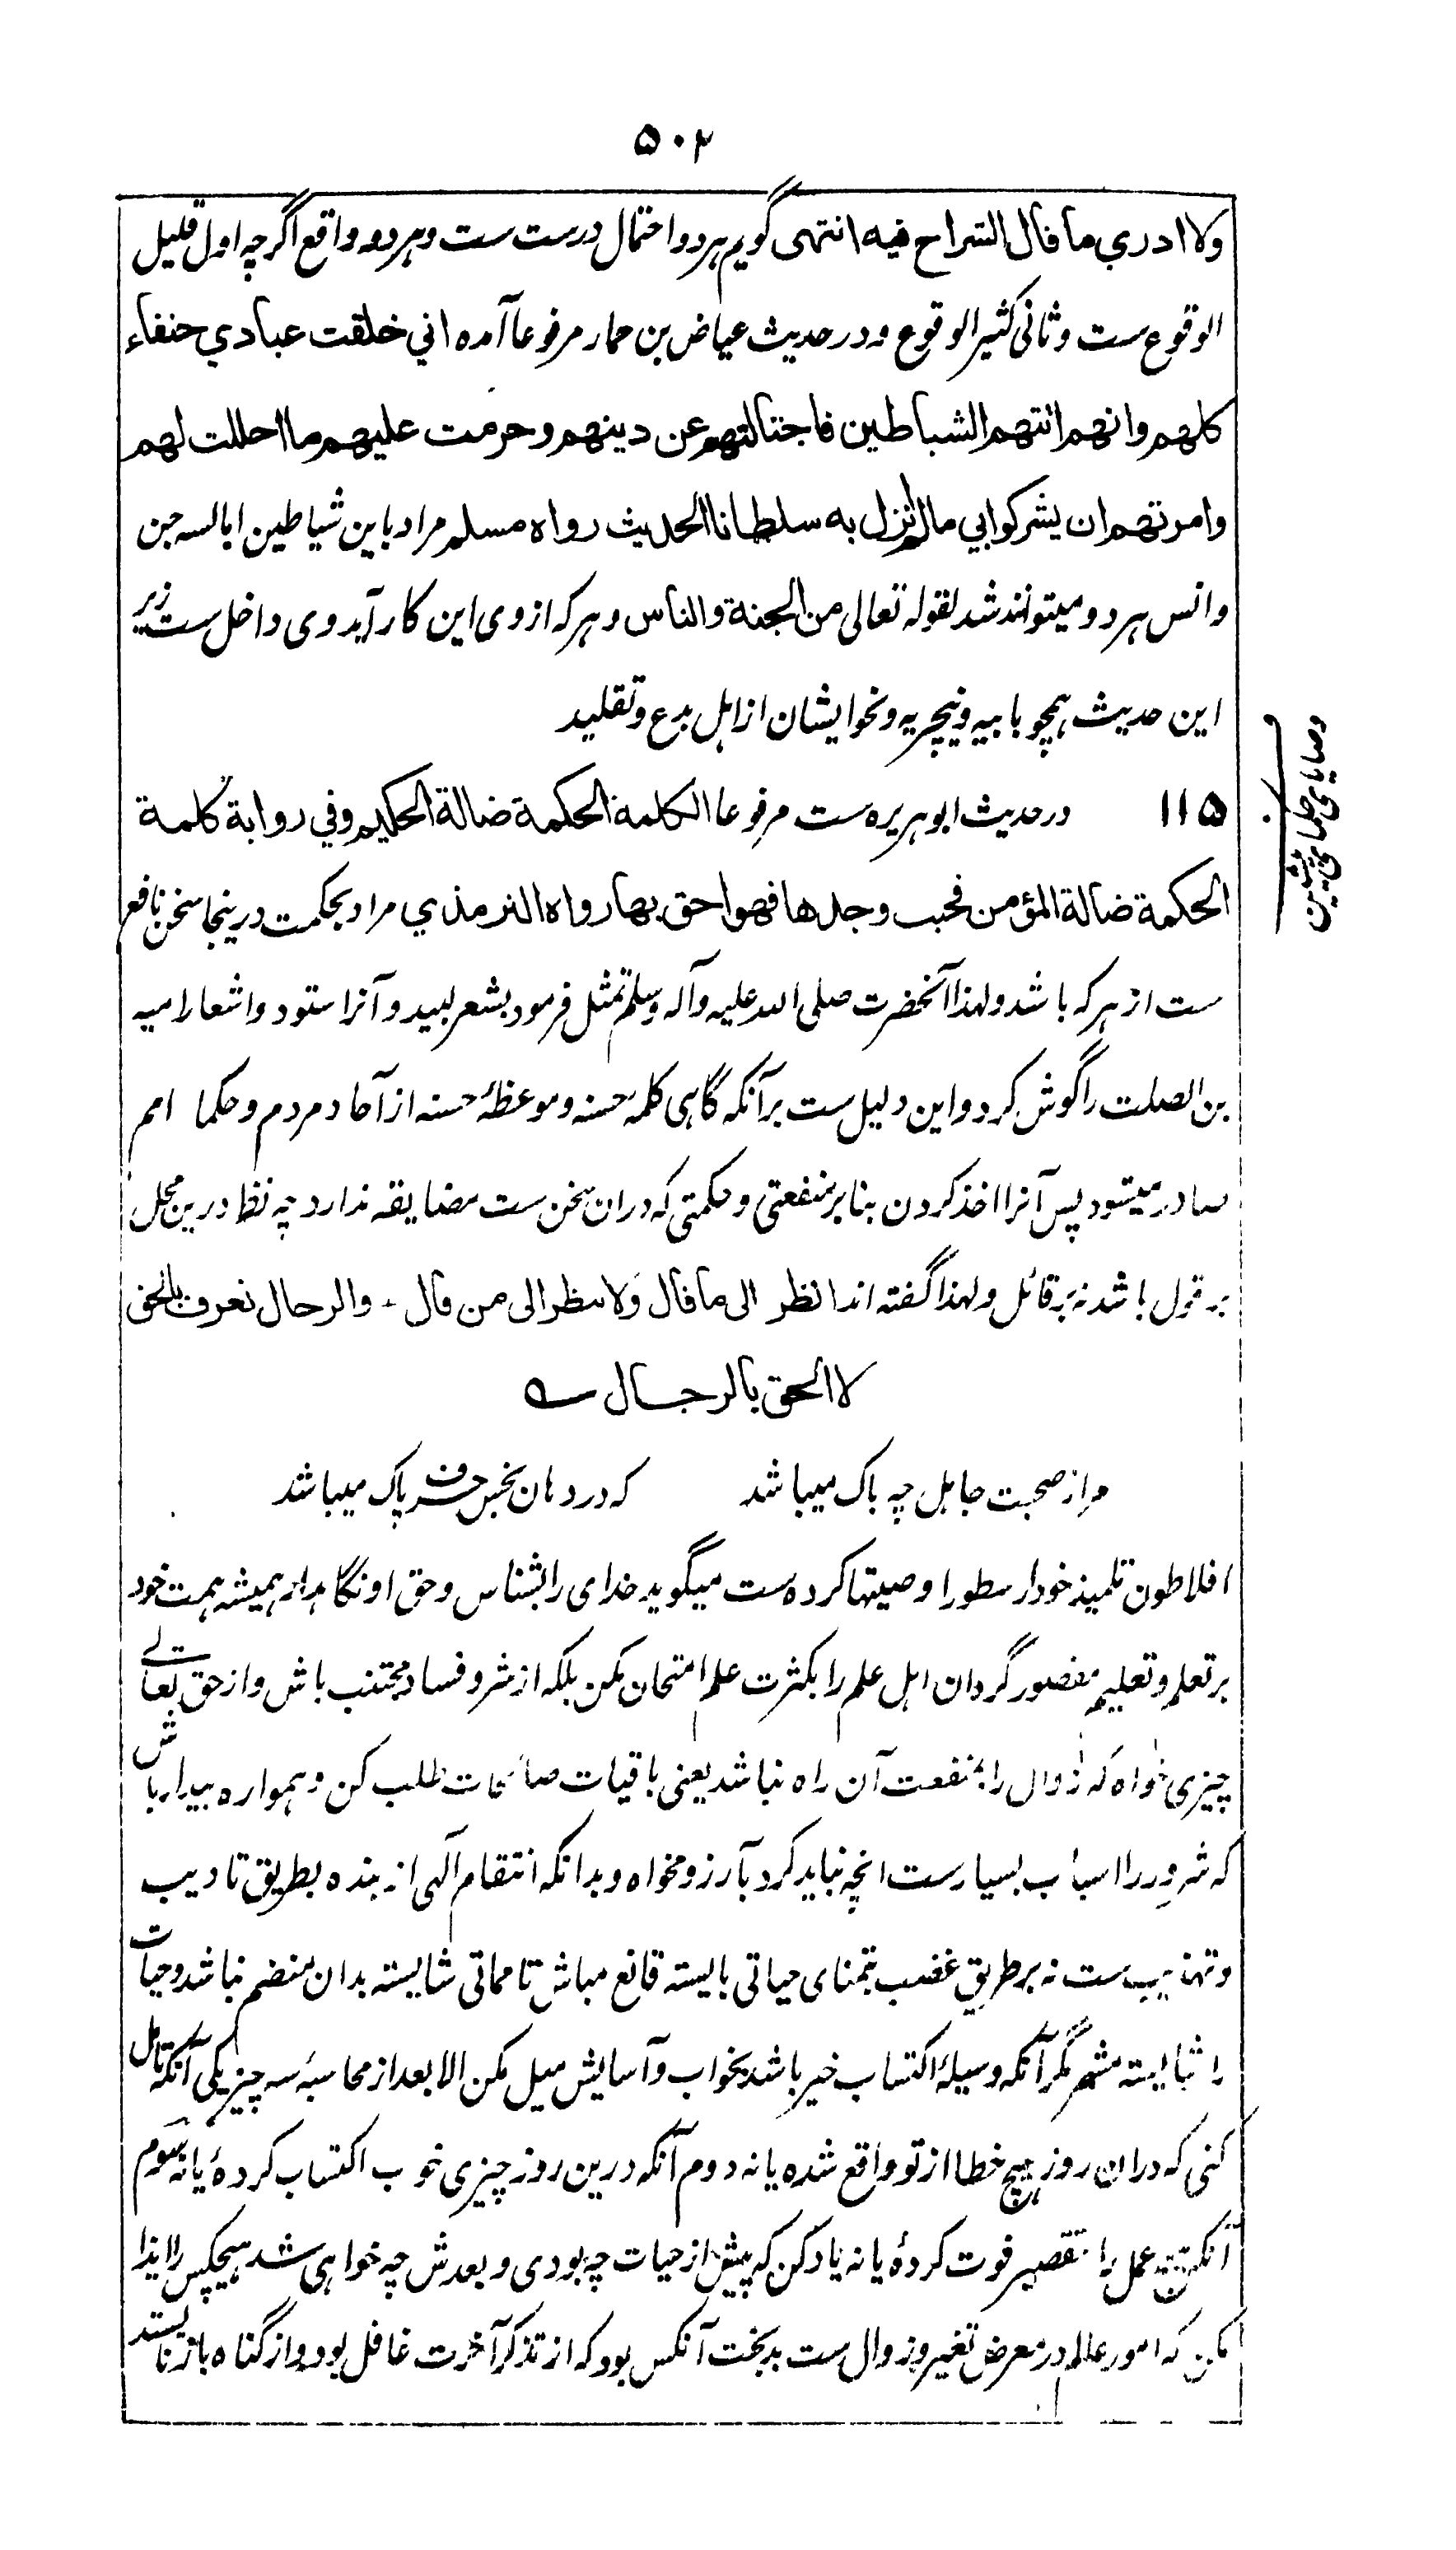 ۵۰۲
ولا ادري ما قال الشراح فيه انتهى گویم هر دو احتمال درست ست و هر دو واقع اگرچه اول قلیل
الوقوع ست و ثانی کثیر الوقوع و در حدیث عیاض بن حمار مرفوعا آمده اني خلقت عبادي حنفاء
كلهم وانهم اتتهم الشياطين فاجتالتهم عن دينهم وحرمت عليهم ما احللت لهم
وامرتهم ان يشركوا بي ما لم انزل به سلطانا الحديث رواه مسلم مراد باین شیاطین ابالسه جن
و انس هر دو میتوانند شد لقوله تعالی من الجنة والناس و هر که از وی این کار آید وی داخل ست زیر
این حدیث همچو بابیه و نیچریه و نحو ایشان از اهل بدع و تقلید
۱۱۵ در حدیث ابو هریره ست مرفوعا الكلمة الحكمة ضالة الحكيم وفي رواية كلمة
الحكمة ضالة المؤمن فحيث وجدها فهو احق بها رواه الترمذي مراد بحکمت درینجا سخن نافع
ست از هر که باشد و لهذا آنحضرت صلی الله علیه وآله وسلم تمثل فرمود بشعر لبید و آنرا ستود و اشعار امیه
بن الصلت را گوش کرد و این دلیل ست بر آنکه گاهی کلمهٔ حسنه و موعظهٔ حسنه از آحاد مردم و حکما امم
صادر میشود پس آنرا اخذ کردن بنا بر منفعتی و حکمتی که دران سخن ست مضایقه ندارد چه نظر درین محل
بر قول باشد نه بر قائل و لهذا گفته اند انظر الى ما قال ولا تنظر الى من قال - والرجال تعرف بالحق
لا الحق بالرجال ــه
مرا از صحبت جاهل چه باک میباشد که در دهان نجس حرف پاک میباشد
افلاطون تلمیذ خود ارسطو را وصیتها کرده ست میگوید خدای را بشناس و حق او نگاهدار همیشه همت خود
بر تعلم و تعلیم مقصور گردان اهل علم را بکثرت علم امتحان مکن بلکه از شر و فساد مجتنب باش و از حق تعالے
چیزی خواه که زوال را بمنفعت آن راه نباشد یعنی باقیات صالحات طلب کن و همواره بیدار باش
که شرور را اسباب بسیارست انچه نباید کرد بآرزو مخواه و بدانکه انتقام الهی از بنده بطریق تادیب
و تهذیب ست نه بر طریق غضب بتمنای حیاتی بایسته قانع مباش تا مماتی شایسته بدان منضم نباشد و حیات
را شایسته مشمر مگر آنکه وسیلهٔ اکتساب خیر باشد بخواب و آسایش میل مکن الا بعد از محاسبهٔ سه چیز یکی آنکه تامل
کنی که دران روز هیچ خطا از تو واقع شده یا نه دوم آنکه درین روز چیزی خوب اکتساب کردهٔ یا نه سوم
آنکه هیچ عمل را بتقصیر فوت کردهٔ یا نه یاد کن که پیش از حیات چه بودی و بعدش چه خواهی شد هیچکس را ایذا
مکن که امور عالم در معرض تغیر و زوال ست بدبخت آنکس بود که از تذکر آخرت غافل بود و از گناه باز نایستد
وصایای حکمای پیشین